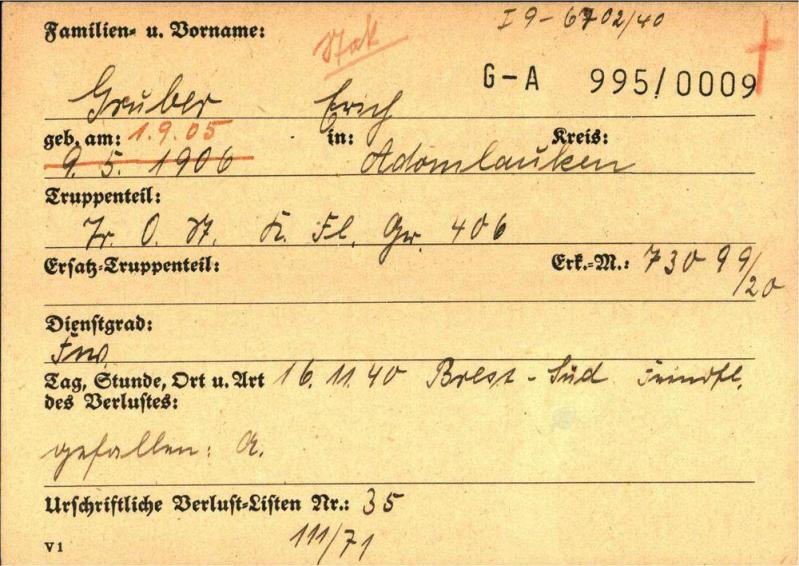 I 9-6702/40
Familien- u. Vorname:
G-A 995/0009
Gruber Erich
geb. am: 1.9.05 in: Kreis:
9. 5. 1906 Adomlauken
Truppenteil:
Tr. O. St. K. Fl. Gr. 406
Ersatz-Truppenteil: Erk.-M.: 73099/20
Dienstgrad:
Fw.
Tag, Stunde, Ort u. Art 16.11.40 Brest-Süd Feindfl.
des Verlustes:
gefallen: A.
Urschriftliche Verlust-Listen Nr.: 35
111/71
V 1